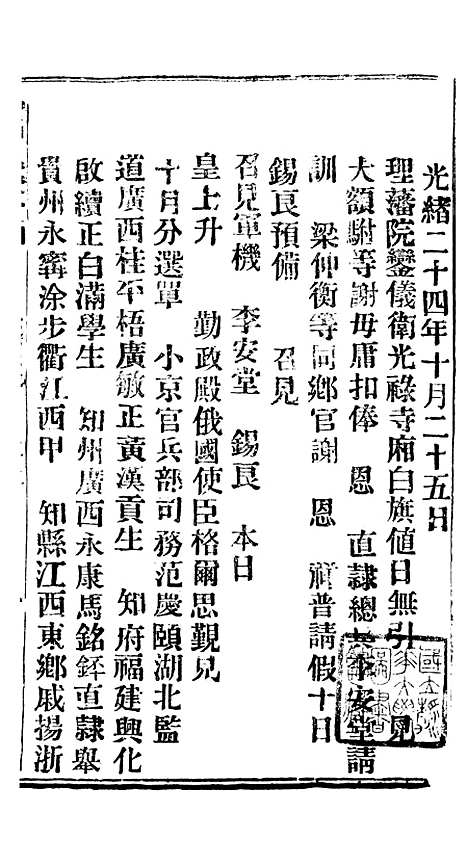 光緒二十四年十月二十五日
理藩院鑾儀衛光祿寺廂白旗值日無引　見
大額駙等謝毋庸扣俸　恩　直隸總兵李安堂請
訓　梁仲衡等同鄉官謝　恩　祥普請假十日
錫良預備　召見
召見軍機　李安堂　錫良　本日
皇上升　勤政殿俄國使臣格爾思覲見
十月分選單　小京官兵部司務范慶頤湖北監
道廣西桂平梧廣敏正黃漢貢生　知府福建興化
啟續正白滿學生　知州廣西永康馬銘鋅直隸舉
貴州永寗涂步衢江西甲　知縣江西東鄉戚揚浙